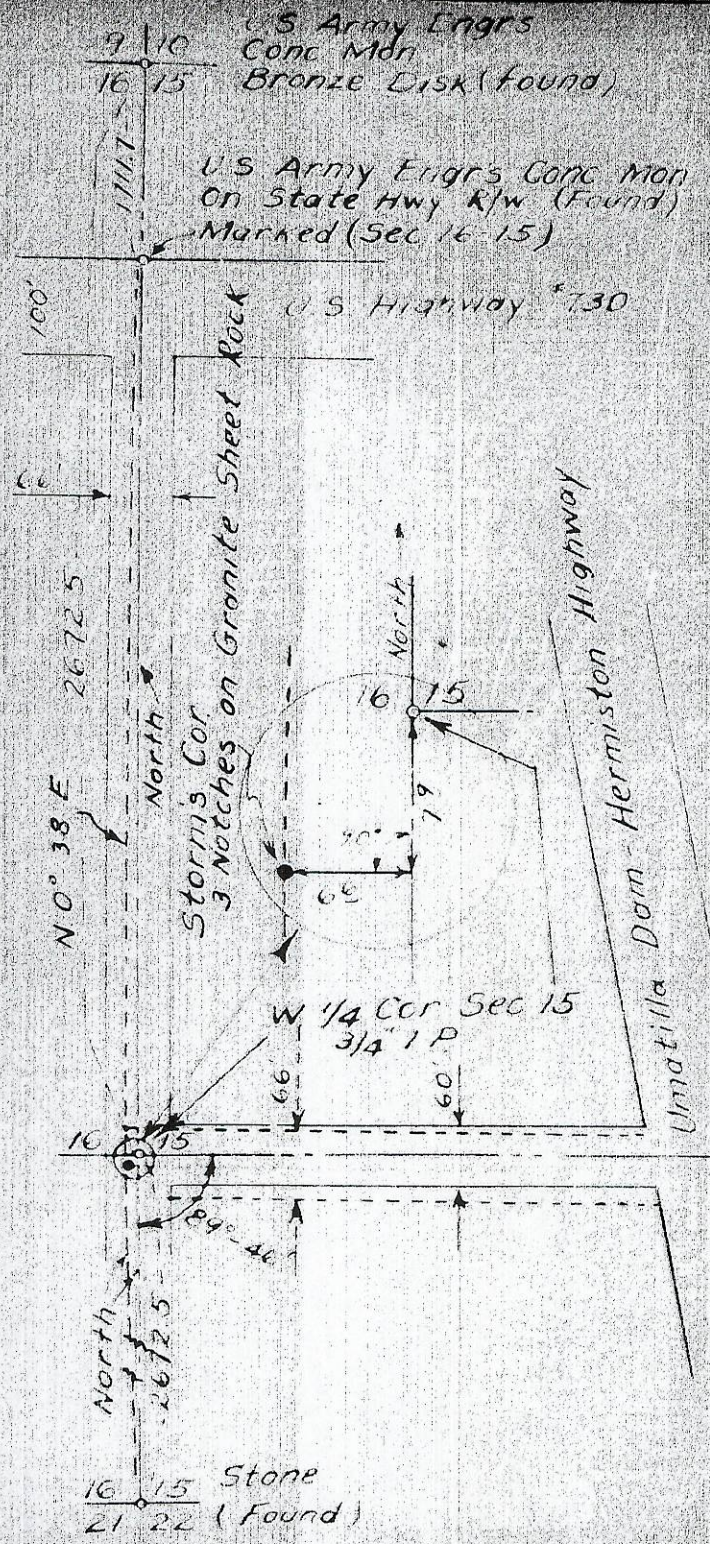 9 10
16 15
US Army Engrs
Conc Mon
Bronze Disk (found)
1711.7
US Army Engrs Conc Mon
On State Hwy R/W (Found)
Marked (Sec 16-15)
100'
US Highway #730
Storm's Cor
3 Notches on Granite Sheet Rock
N 0° 38 E
2672.5
North
North
16 15
79
90°
66
Umatilla Dam-Hermiston Highway
W 1/4 Cor Sec 15
3/4" I P
66
60'
16 15
89°-46'
North
2672.5
16 15
21 22
Stone
(Found)